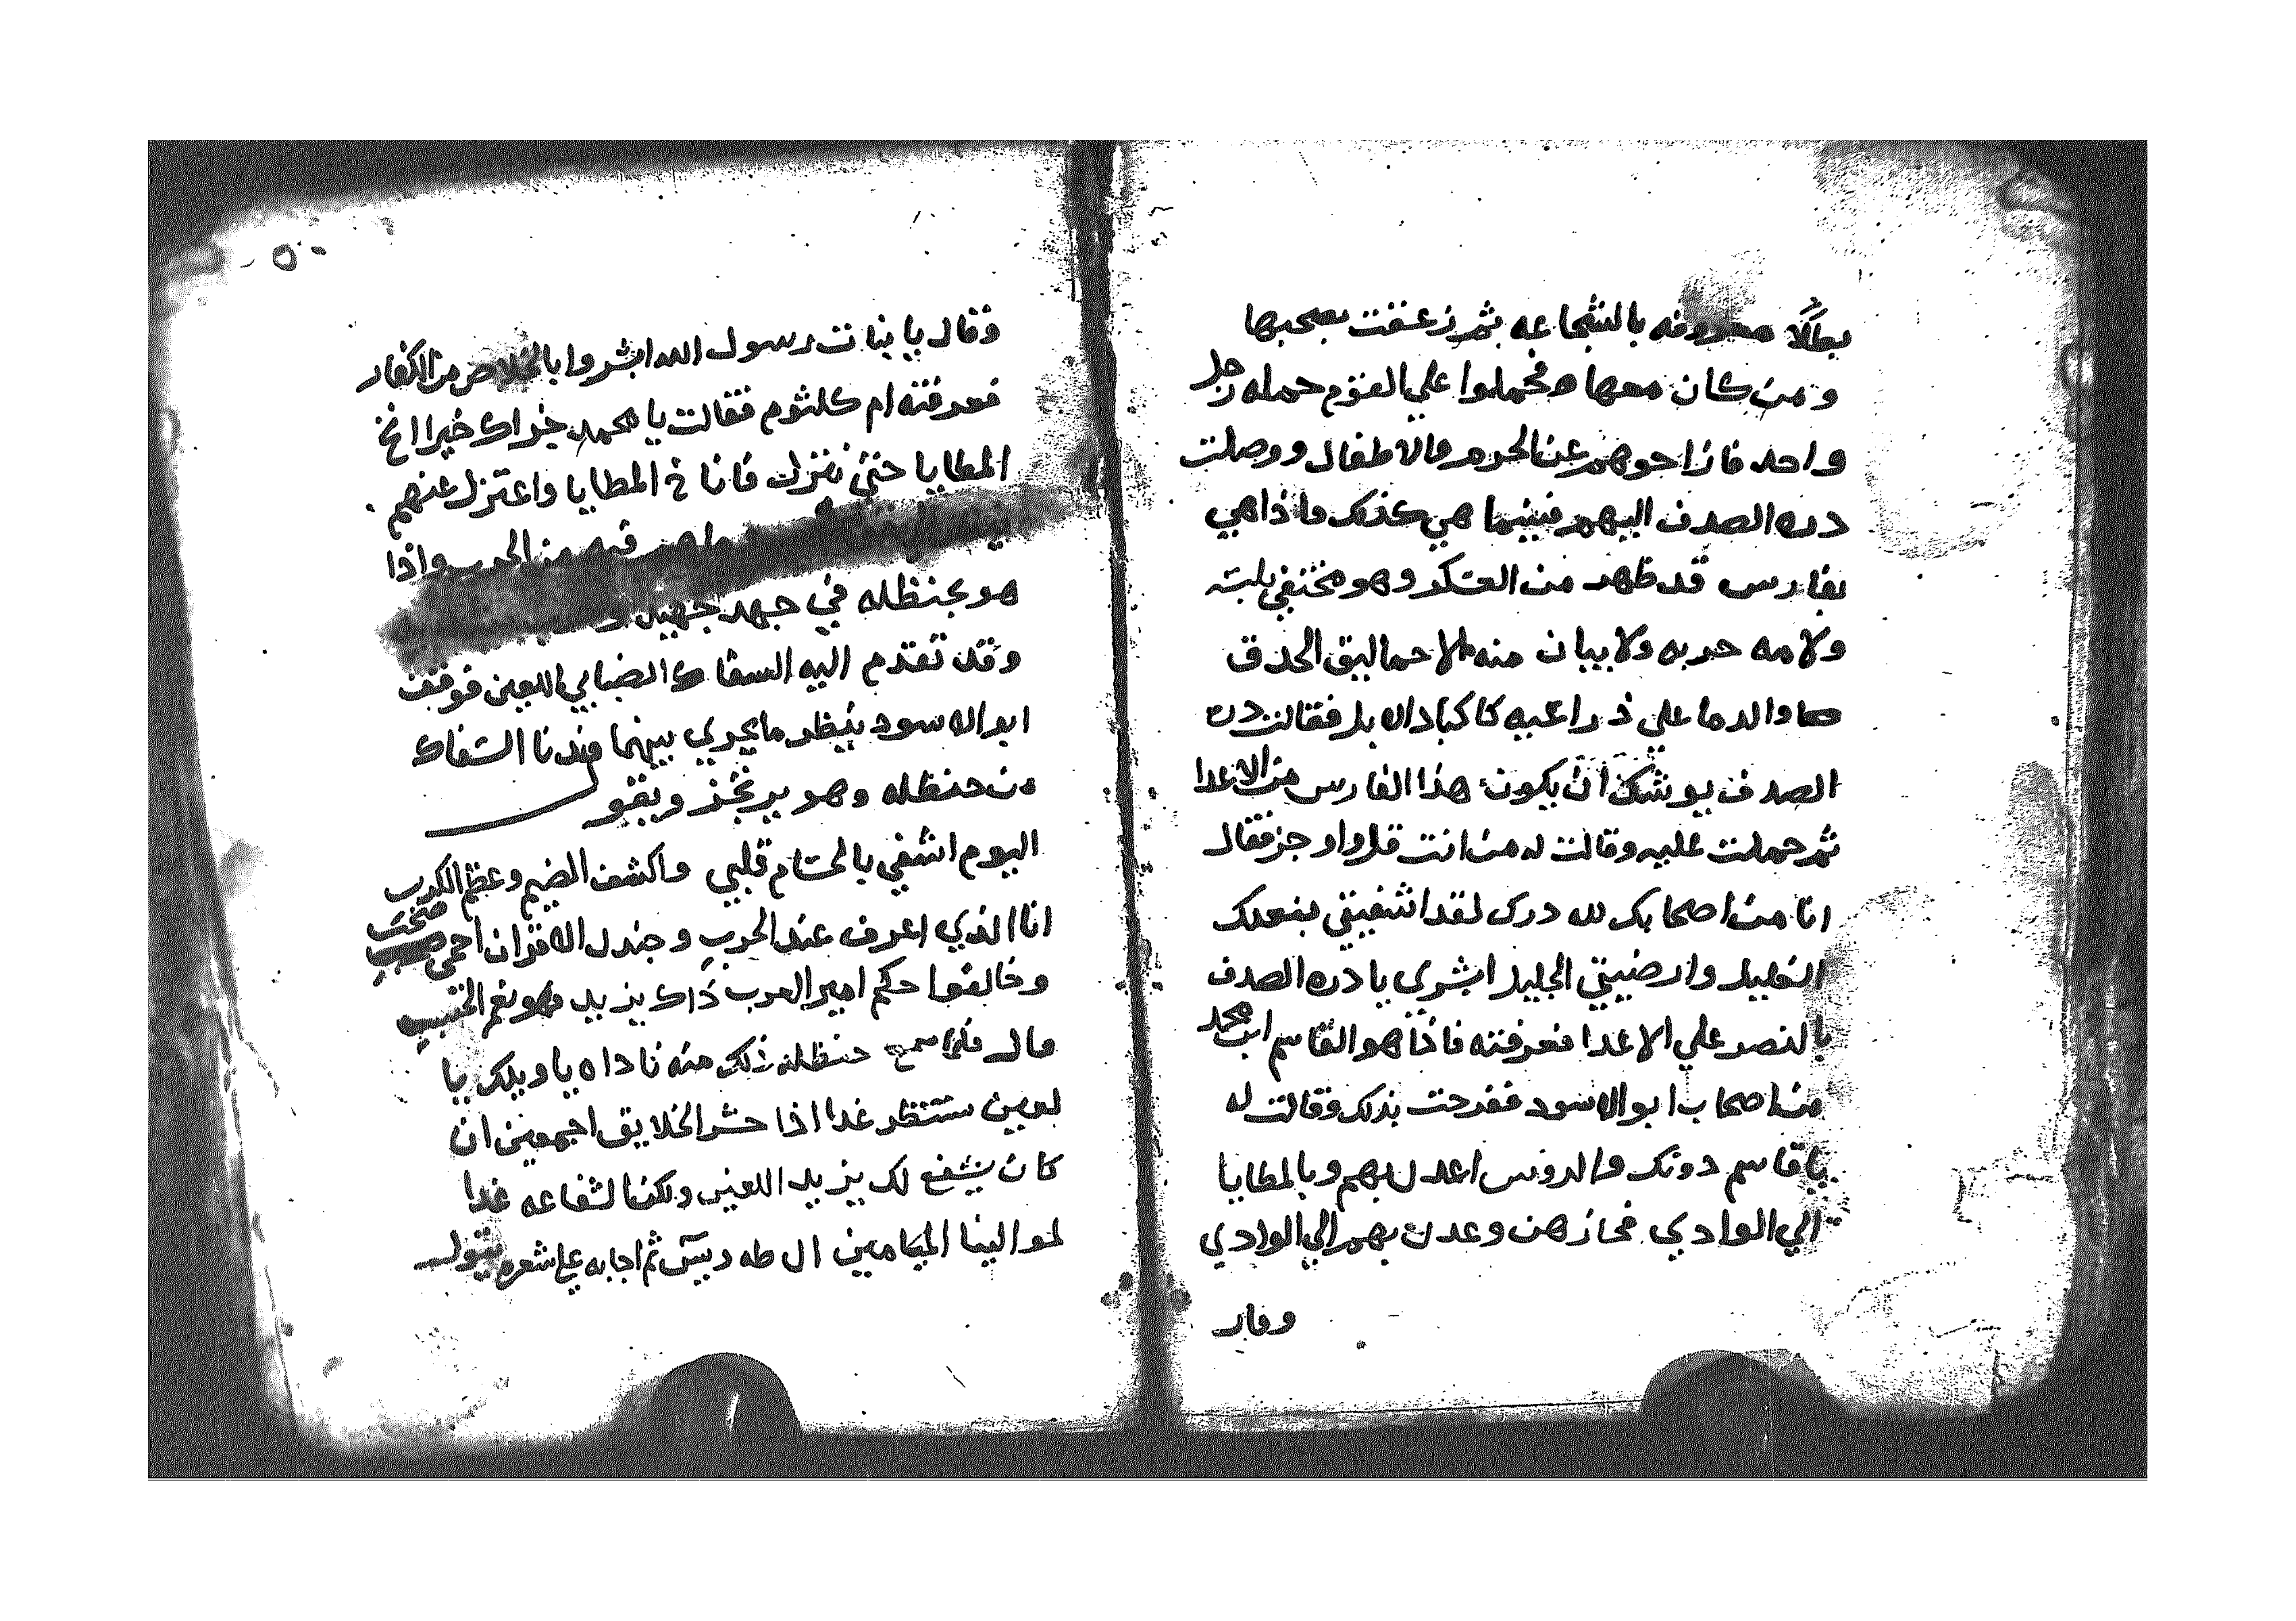 بطالا معروفه بالشجاعه ثم زعقت بصحبها
ومن كان معها فحملوا علي القوم حمله رجل
واحد فازاحوهم عن الحرم والاطفال ووصلت
دره الصدف اليهم فبينما هي كذلك واذا هي
بفارس قد ظهر من العسكر وهو مختفي بلبته
ولامه حربه ولا يبان منه الا حماليق الحدق
والدما علي ذراعيه كاكباد الابل فقالت دره
الصدف يوشك ان يكون هذا الفارس من الاعدا
ثم حملت عليه وقالت له من انت قل واوجز فقال
انا من اصحابك لله درك لقد اشفيتي بفعلك
الغليل وارضيتي الجليل ابشري يا دره الصدف
بالنصر علي الاعدا فعرفته فاذا هو القاسم ابن محمد
من اصحاب ابو الاسود ففرحت بذلك وقالت له
يا قاسم دونك والروس اعدل بهم وبالمطايا
الي الوادي فحازهن وعدل بهم الي الوادي
وقال
٥٠
وقال يا بنات رسول الله ابشروا بالخلاص من الكفار
فعرفته ام كلثوم فقالت يا محمد جزاك خيرا انخ
المطايا حتي ننزل فاناخ المطايا واعتزل عنهم
فيه من الحرب واذا
هو بحنظله في جهد جهيد
وقد تقدم اليه السفاك الضبابي اللعين فوقف
ابو الاسود ينظر ما يجري بينهما فدنا السفاك
من حنظله وهو يرتجز ويقو
اليوم اشفي بالحسام قلبي واكشف الضيم وعظم الكرب
انا الذي اعرف عند الحرب وجندل الاقران احمي صحبتي
وخالفوا حكم امير العرب ذاك يزيد فهو نعم الحسب
قال فلما سمع حنظله ذلك منه ناداه يا ويلك يا
لعين ستنظر غدا اذا حشر الخلايق اجمعين ان
كان يشفع لك يزيد اللعين ولكن الشفاعه غدا
لموالينا الميامين ال طه ويس ثم اجابه علي شعره يقول